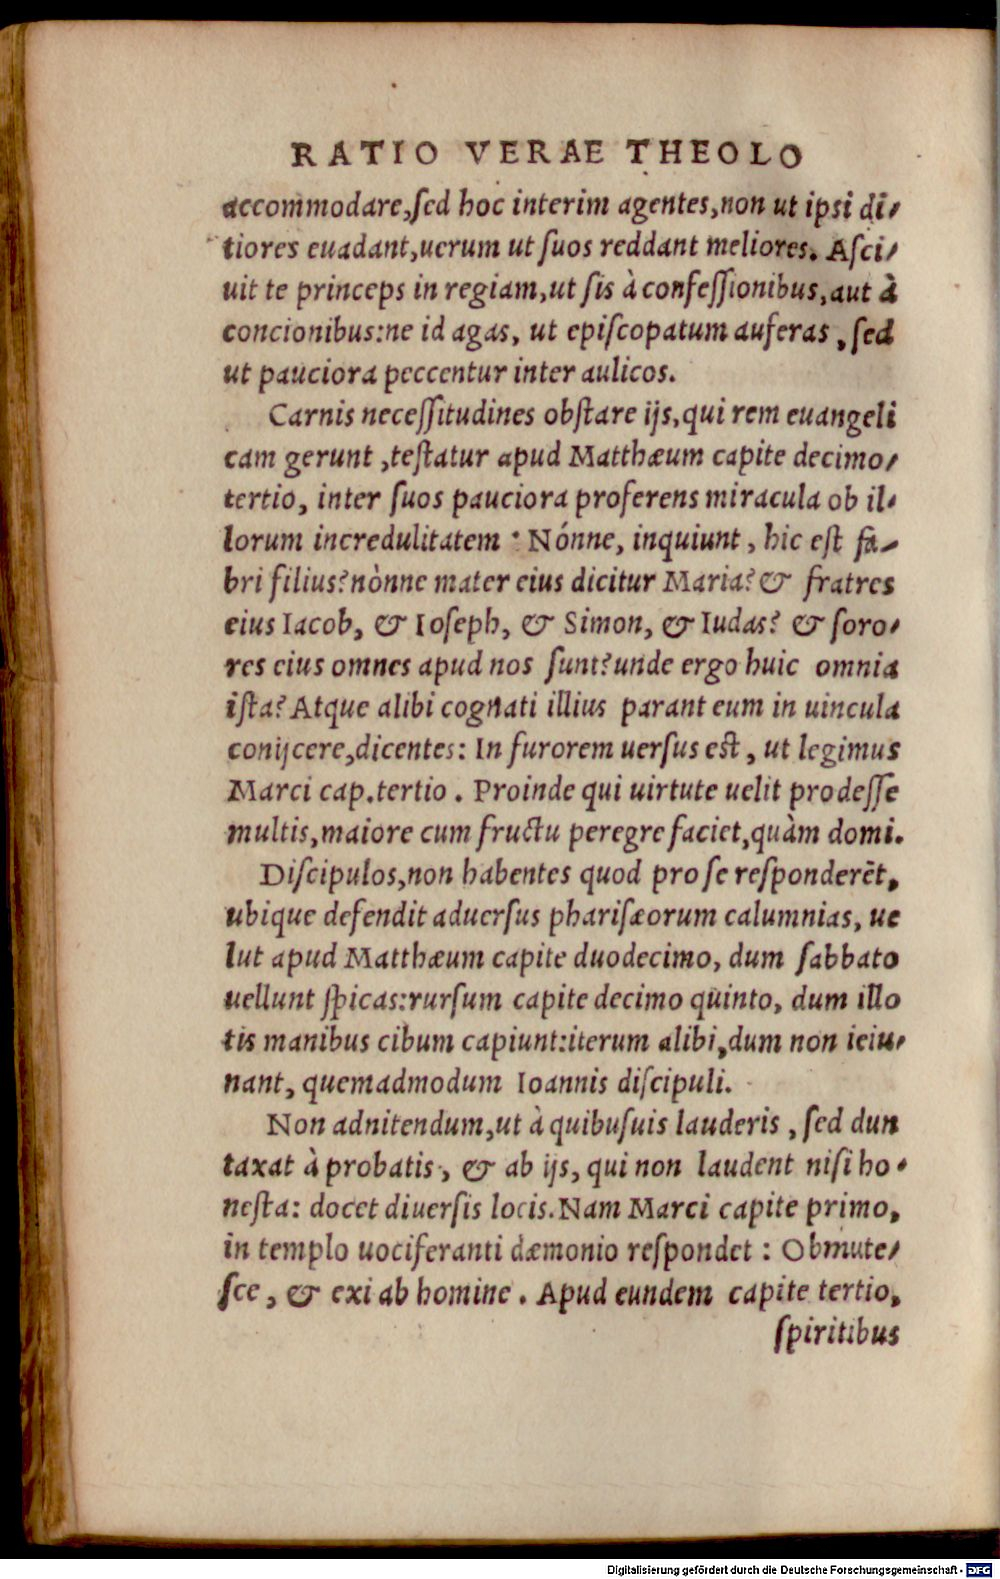 RATIO VERAE THEOLO
accommodare,ſed hoc interim agentes,non ut ipsi di-
tiores euadant,uerum ut ſuos reddant meliores. Aſci-
uit te princeps in regiam,ut ſis à confeſſionibus,aut à
concionibus:ne id agas, ut epiſcopatum auferas , ſed
ut pauciora peccentur inter aulicos.
Carnis neceſſitudines obſtare ijs,qui rem euangeli
cam gerunt ,teſtatur apud Matthæum capite decimo-
tertio, inter ſuos pauciora proferens miracula ob il-
lorum incredulitatem · Nónne, inquiunt , hic eſt fa-
bri filius? nònne mater eius dicitur Maria? & fratres
eius Iacob, & Ioſeph, & Simon, & Iudas? & ſoro-
res eius omnes apud nos ſunt? unde ergo huic omnia
iſta? Atque alibi cognati illius parant eum in uincula
conijcere,dicentes: In furorem uerſus eſt , ut legimus
Marci cap.tertio . Proinde qui uirtute uelit prodeſſe
multis,maiore cum fructu peregre faciet,quàm domi.
Diſcipulos,non habentes quod pro ſe reſponderẽt,
ubique defendit aduerſus phariſæorum calumnias, ue
lut apud Matthæum capite duodecimo, dum ſabbato
uellunt ſpicas:rurſum capite decimo quinto, dum illo
tis manibus cibum capiunt:iterum alibi,dum non ieiu-
nant, quemadmodum Ioannis diſcipuli.
Non adnitendum,ut à quibuſuis lauderis , ſed dun
taxat à probatis , & ab ijs, qui non laudent niſi ho-
neſta: docet diuerſis locis. Nam Marci capite primo,
in templo uociferanti dæmonio reſpondet : Obmute-
ſce , & exi ab homine . Apud eundem capite tertio,
ſpiritibus
Digitalisierung gefördert durch die Deutsche Forschungsgemeinschaft - DFG